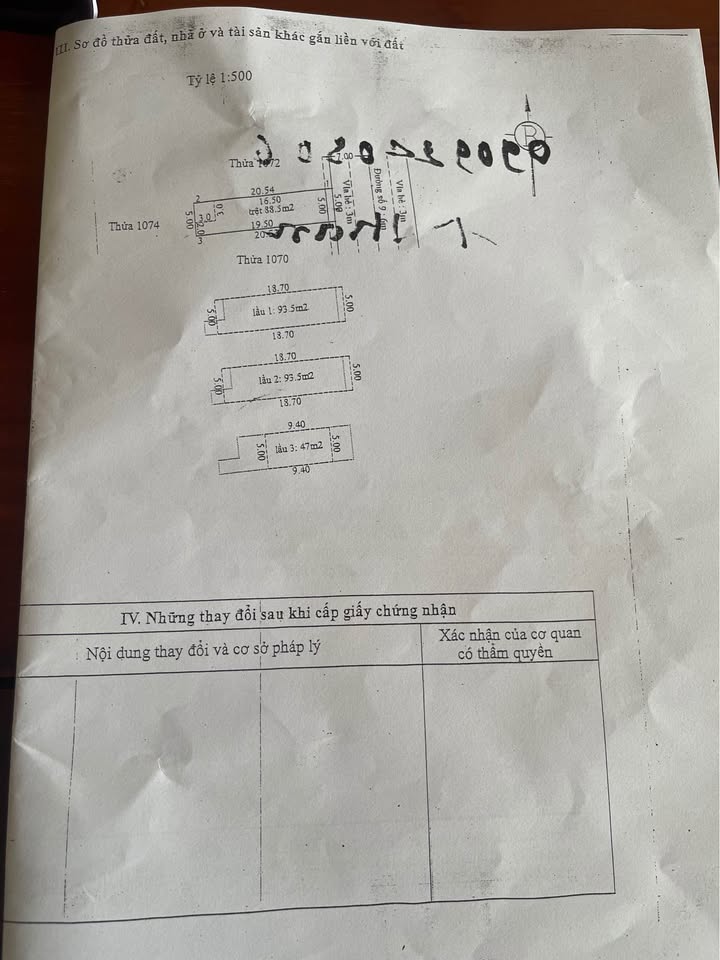 III. Sơ đồ thửa đất, nhà ở và tài sản khác gắn liền với đất
Tỷ lệ 1:500
B
Thửa 1072
7.00
20.54
16.50
trệt 88.5m2
2
3.0
3.0
5.00
2.0
3
19.50
5.00
5.00
Vỉa hè : 3m
Đường số 9 : 6m
Vỉa hè : 3m
Thửa 1074
Thửa 1070
18.70
5.00
lầu 1: 93.5m2
5.00
18.70
18.70
5.00
lầu 2: 93.5m2
5.00
18.70
9.40
5.00
lầu 3: 47m2
5.00
9.40
IV. Những thay đổi sau khi cấp giấy chứng nhận
Nội dung thay đổi và cơ sở pháp lý
Xác nhận của cơ quan
có thẩm quyền